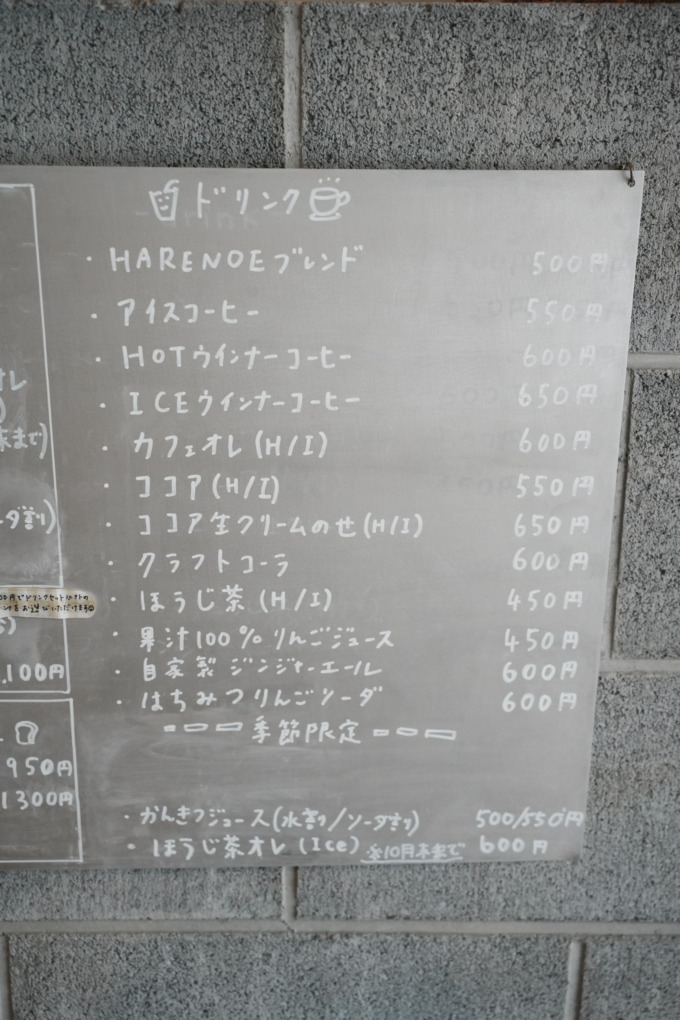 ドリンク
・HARENOEブレンド 500円
・アイスコーヒー 550円
・HOTウインナーコーヒー 600円
・ICEウインナーコーヒー 650円
・カフェオレ(H/I) 600円
・ココア(H/I) 550円
・ココア生クリームのせ(H/I) 650円
・クラフトコーラ 600円
・ほうじ茶(H/I) 450円
・果汁100%りんごジュース 450円
・自家製ジンジャーエール 600円
・はちみつりんごソーダ 600円
季節限定
・かんきつジュース(水割/ソーダ割) 500/550円
・ほうじ茶オレ(Ice) ※10月末まで 600円
オレ
末まで)
ーダ割)
,100円
950円
1300円